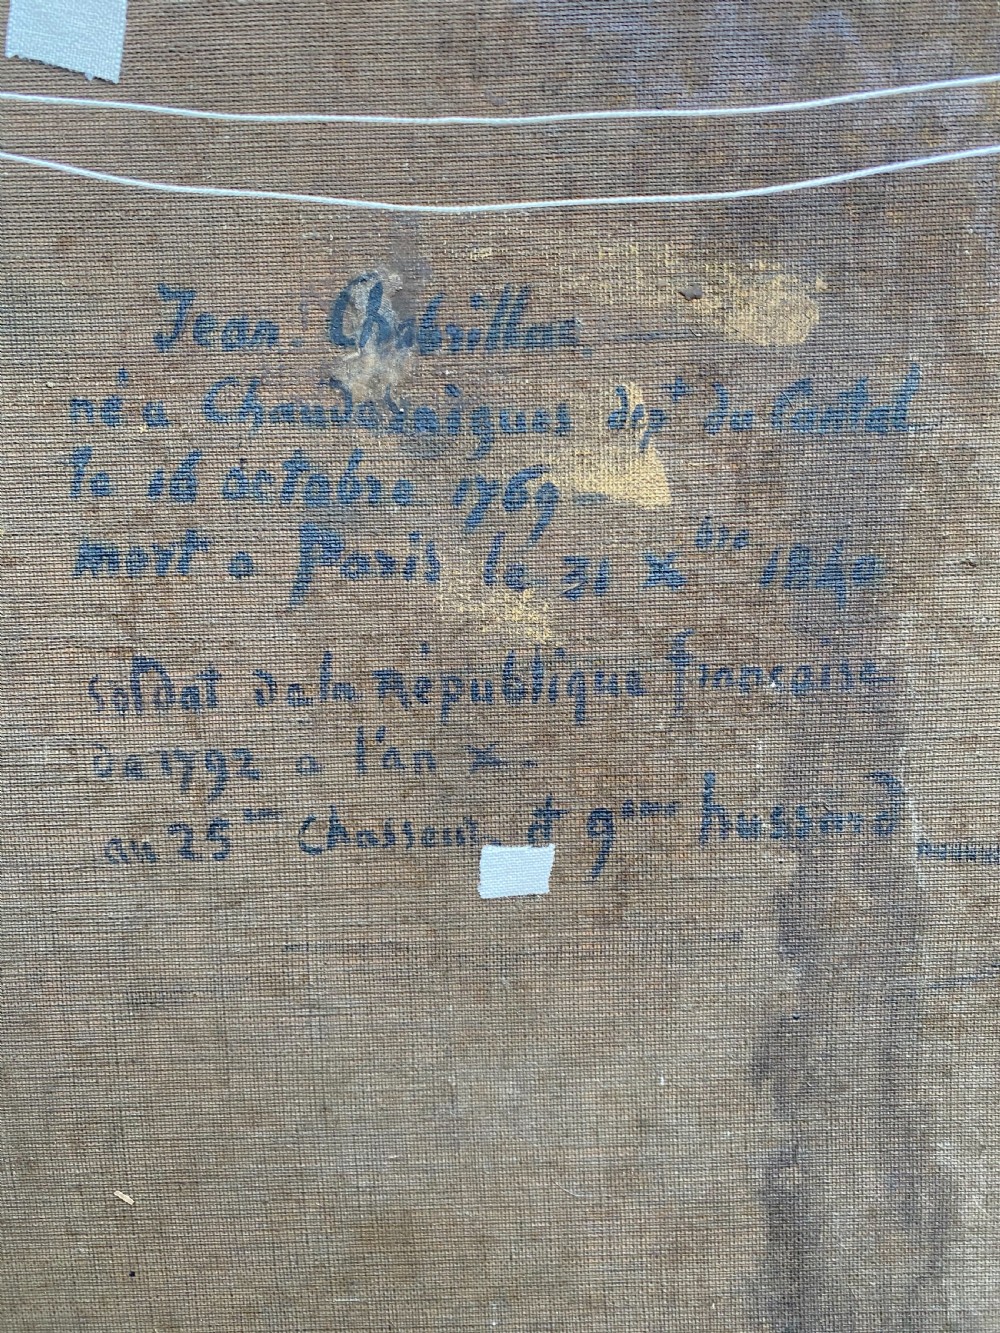 Jean Chabrillac
né a Chaudesaigues dep^t du Cantal
le 16 octobre 1769
mort a Paris le 31 x^bre 1840
soldat de la République française
de 1792 a l'an x.
au 25^me Chasseur et 9^eme hussard